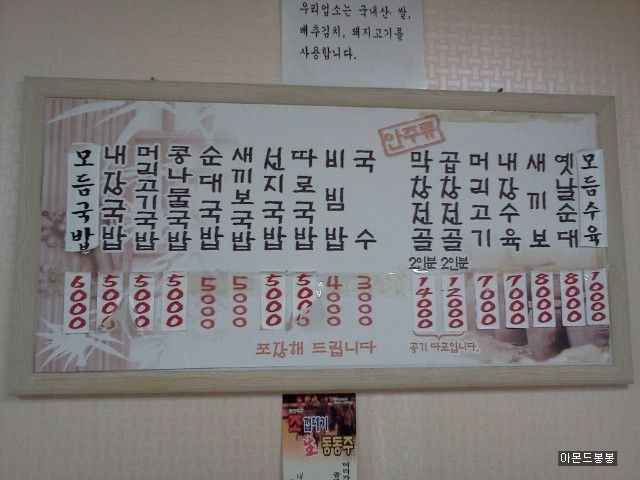 우리업소는 국내산 쌀,
배추김치, 돼지고기를
사용합니다.
안주류
모듬국밥
내장국밥
머리고기국밥
콩나물국밥
순대국밥
새끼보국밥
선지국밥
따로국밥
비빔밥
국수
막창전골
곱창전골
머리고기
내장수육
새끼보
옛날순대
모듬수육
2인분 2인분
6000
5000
5000
5000
5000
5000
5000
5000
4000
3000
14000
12000
7000
7000
8000
8000
10000
포장해 드립니다
공기 따로입니다.
껍데기
동동주
아몬드봉봉